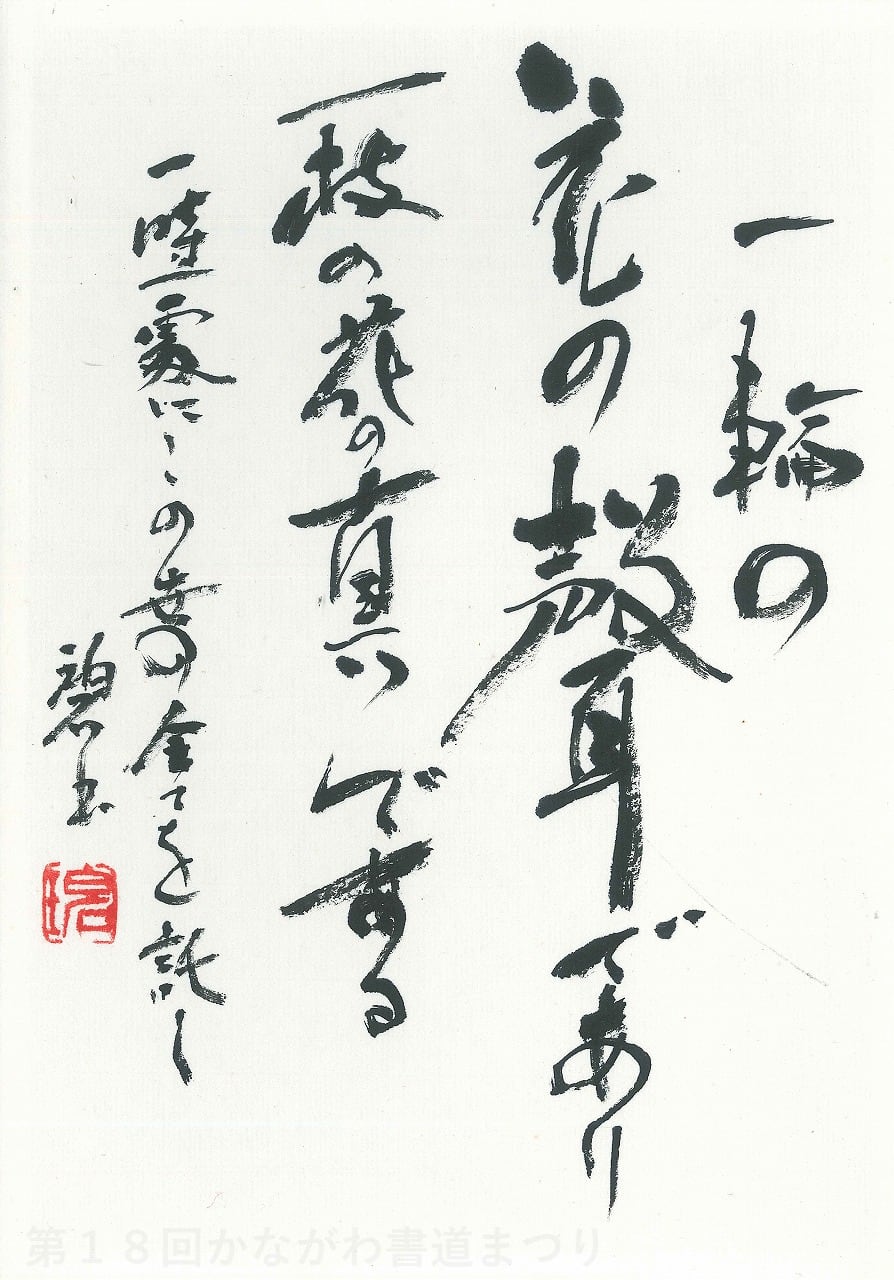 一輪の
花の聲であり
一枝の花の真である
一時一處にこの世の全てを託し
碧玉
第18回かながわ書道まつり